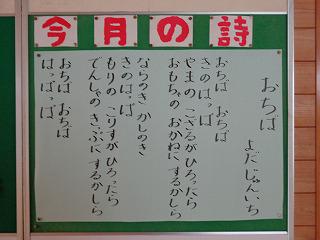 今月の詩
おちば
よだじゅんいち
おちば おちば
きのはっぱ
やまの こざるがひろったら
おもちゃの おかねに するかしら
ならのき かしのき
きのはっぱ
もりの こりすがひろったら
でんしゃの きっぷに するかしら
おちば おちば
はっぱっぱ